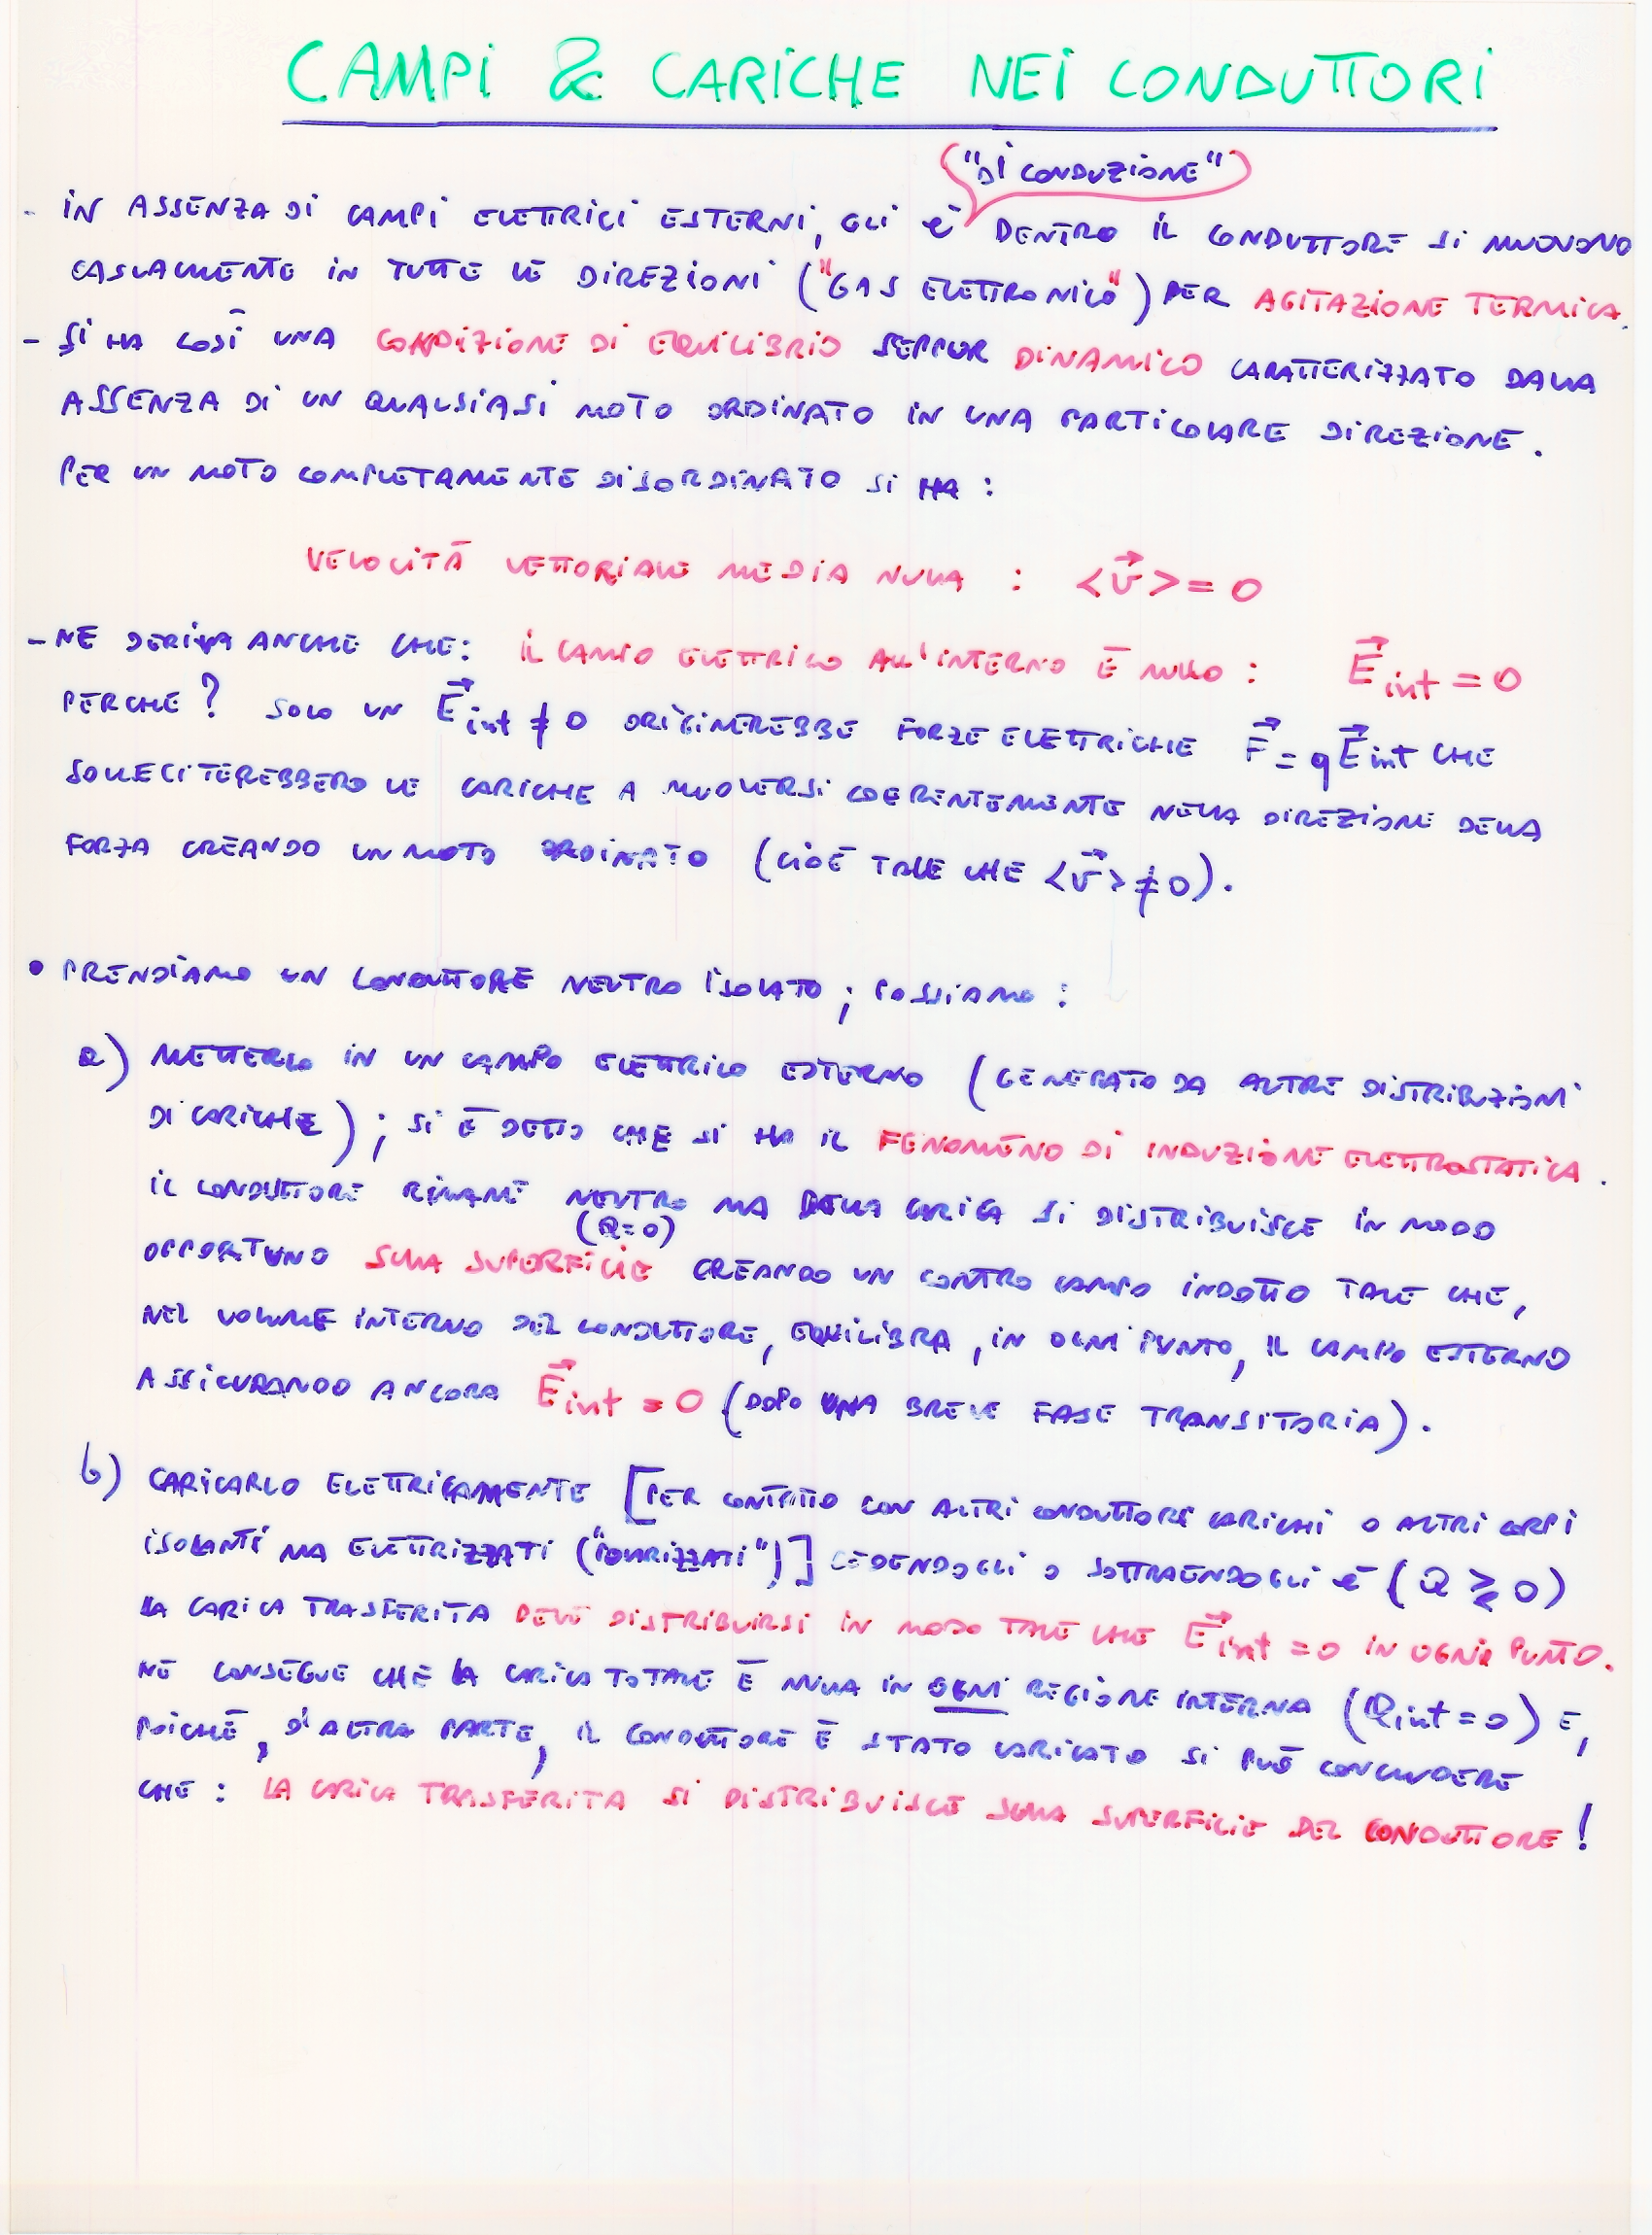 CAMPI & CARICHE NEI CONDUTTORI
("DI CONDUZIONE")
- IN ASSENZA DI CAMPI ELETTRICI ESTERNI, GLI e⁻ DENTRO IL CONDUTTORE SI MUOVONO
CASUALMENTE IN TUTTE LE DIREZIONI ("GAS ELETTRONICO") PER AGITAZIONE TERMICA.
- SI HA COSÌ UNA CONDIZIONE DI EQUILIBRIO SEPPUR DINAMICO CARATTERIZZATO DALLA
ASSENZA DI UN QUALSIASI MOTO ORDINATO IN UNA PARTICOLARE DIREZIONE.
PER UN MOTO COMPLETAMENTE DISORDINATO SI HA :
VELOCITÀ VETTORIALE MEDIA NULLA : <v⃗> = 0
- NE DERIVA ANCHE CHE: IL CAMPO ELETTRICO ALL'INTERNO È NULLO : E⃗int = 0
PERCHÉ ? SOLO UN E⃗int ≠ 0 ORIGINEREBBE FORZE ELETTRICHE F⃗ = qE⃗int CHE
SOLLECITEREBBERO LE CARICHE A MUOVERSI COERENTEMENTE NELLA DIREZIONE DELLA
FORZA CREANDO UN MOTO ORDINATO (CIOÈ TALE CHE <v⃗> ≠ 0).
• PRENDIAMO UN CONDUTTORE NEUTRO ISOLATO ; POSSIAMO :
a) METTERLO IN UN CAMPO ELETTRICO ESTERNO (GENERATO DA ALTRE DISTRIBUZIONI
DI CARICHE) ; SI È DETTO CHE SI HA IL FENOMENO DI INDUZIONE ELETTROSTATICA .
IL CONDUTTORE RIMANE NEUTRO MA DELLA CARICA SI DISTRIBUISCE IN MODO
(Q=0)
OPPORTUNO SULLA SUPERFICIE CREANDO UN CONTRO CAMPO INDOTTO TALE CHE,
NEL VOLUME INTERNO DEL CONDUTTORE, EQUILIBRA , IN OGNI PUNTO, IL CAMPO ESTERNO
ASSICURANDO ANCORA E⃗int = 0 (DOPO UNA BREVE FASE TRANSITORIA).
b) CARICARLO ELETTRICAMENTE [PER CONTATTO CON ALTRI CONDUTTORI CARICHI O ALTRI CORPI
ISOLANTI MA ELETTRIZZATI ("POLARIZZATI")] CEDENDOGLI O SOTTRAENDOGLI e⁻ (Q ≷ 0)
LA CARICA TRASFERITA DEVE DISTRIBUIRSI IN MODO TALE CHE E⃗int = 0 IN OGNI PUNTO.
NE CONSEGUE CHE LA CARICA TOTALE È NULLA IN OGNI REGIONE INTERNA (Qint = 0) E,
POICHÉ, D'ALTRA PARTE, IL CONDUTTORE È STATO CARICATO SI PUÒ CONCLUDERE
CHE : LA CARICA TRASFERITA SI DISTRIBUISCE SULLA SUPERFICIE DEL CONDUTTORE !